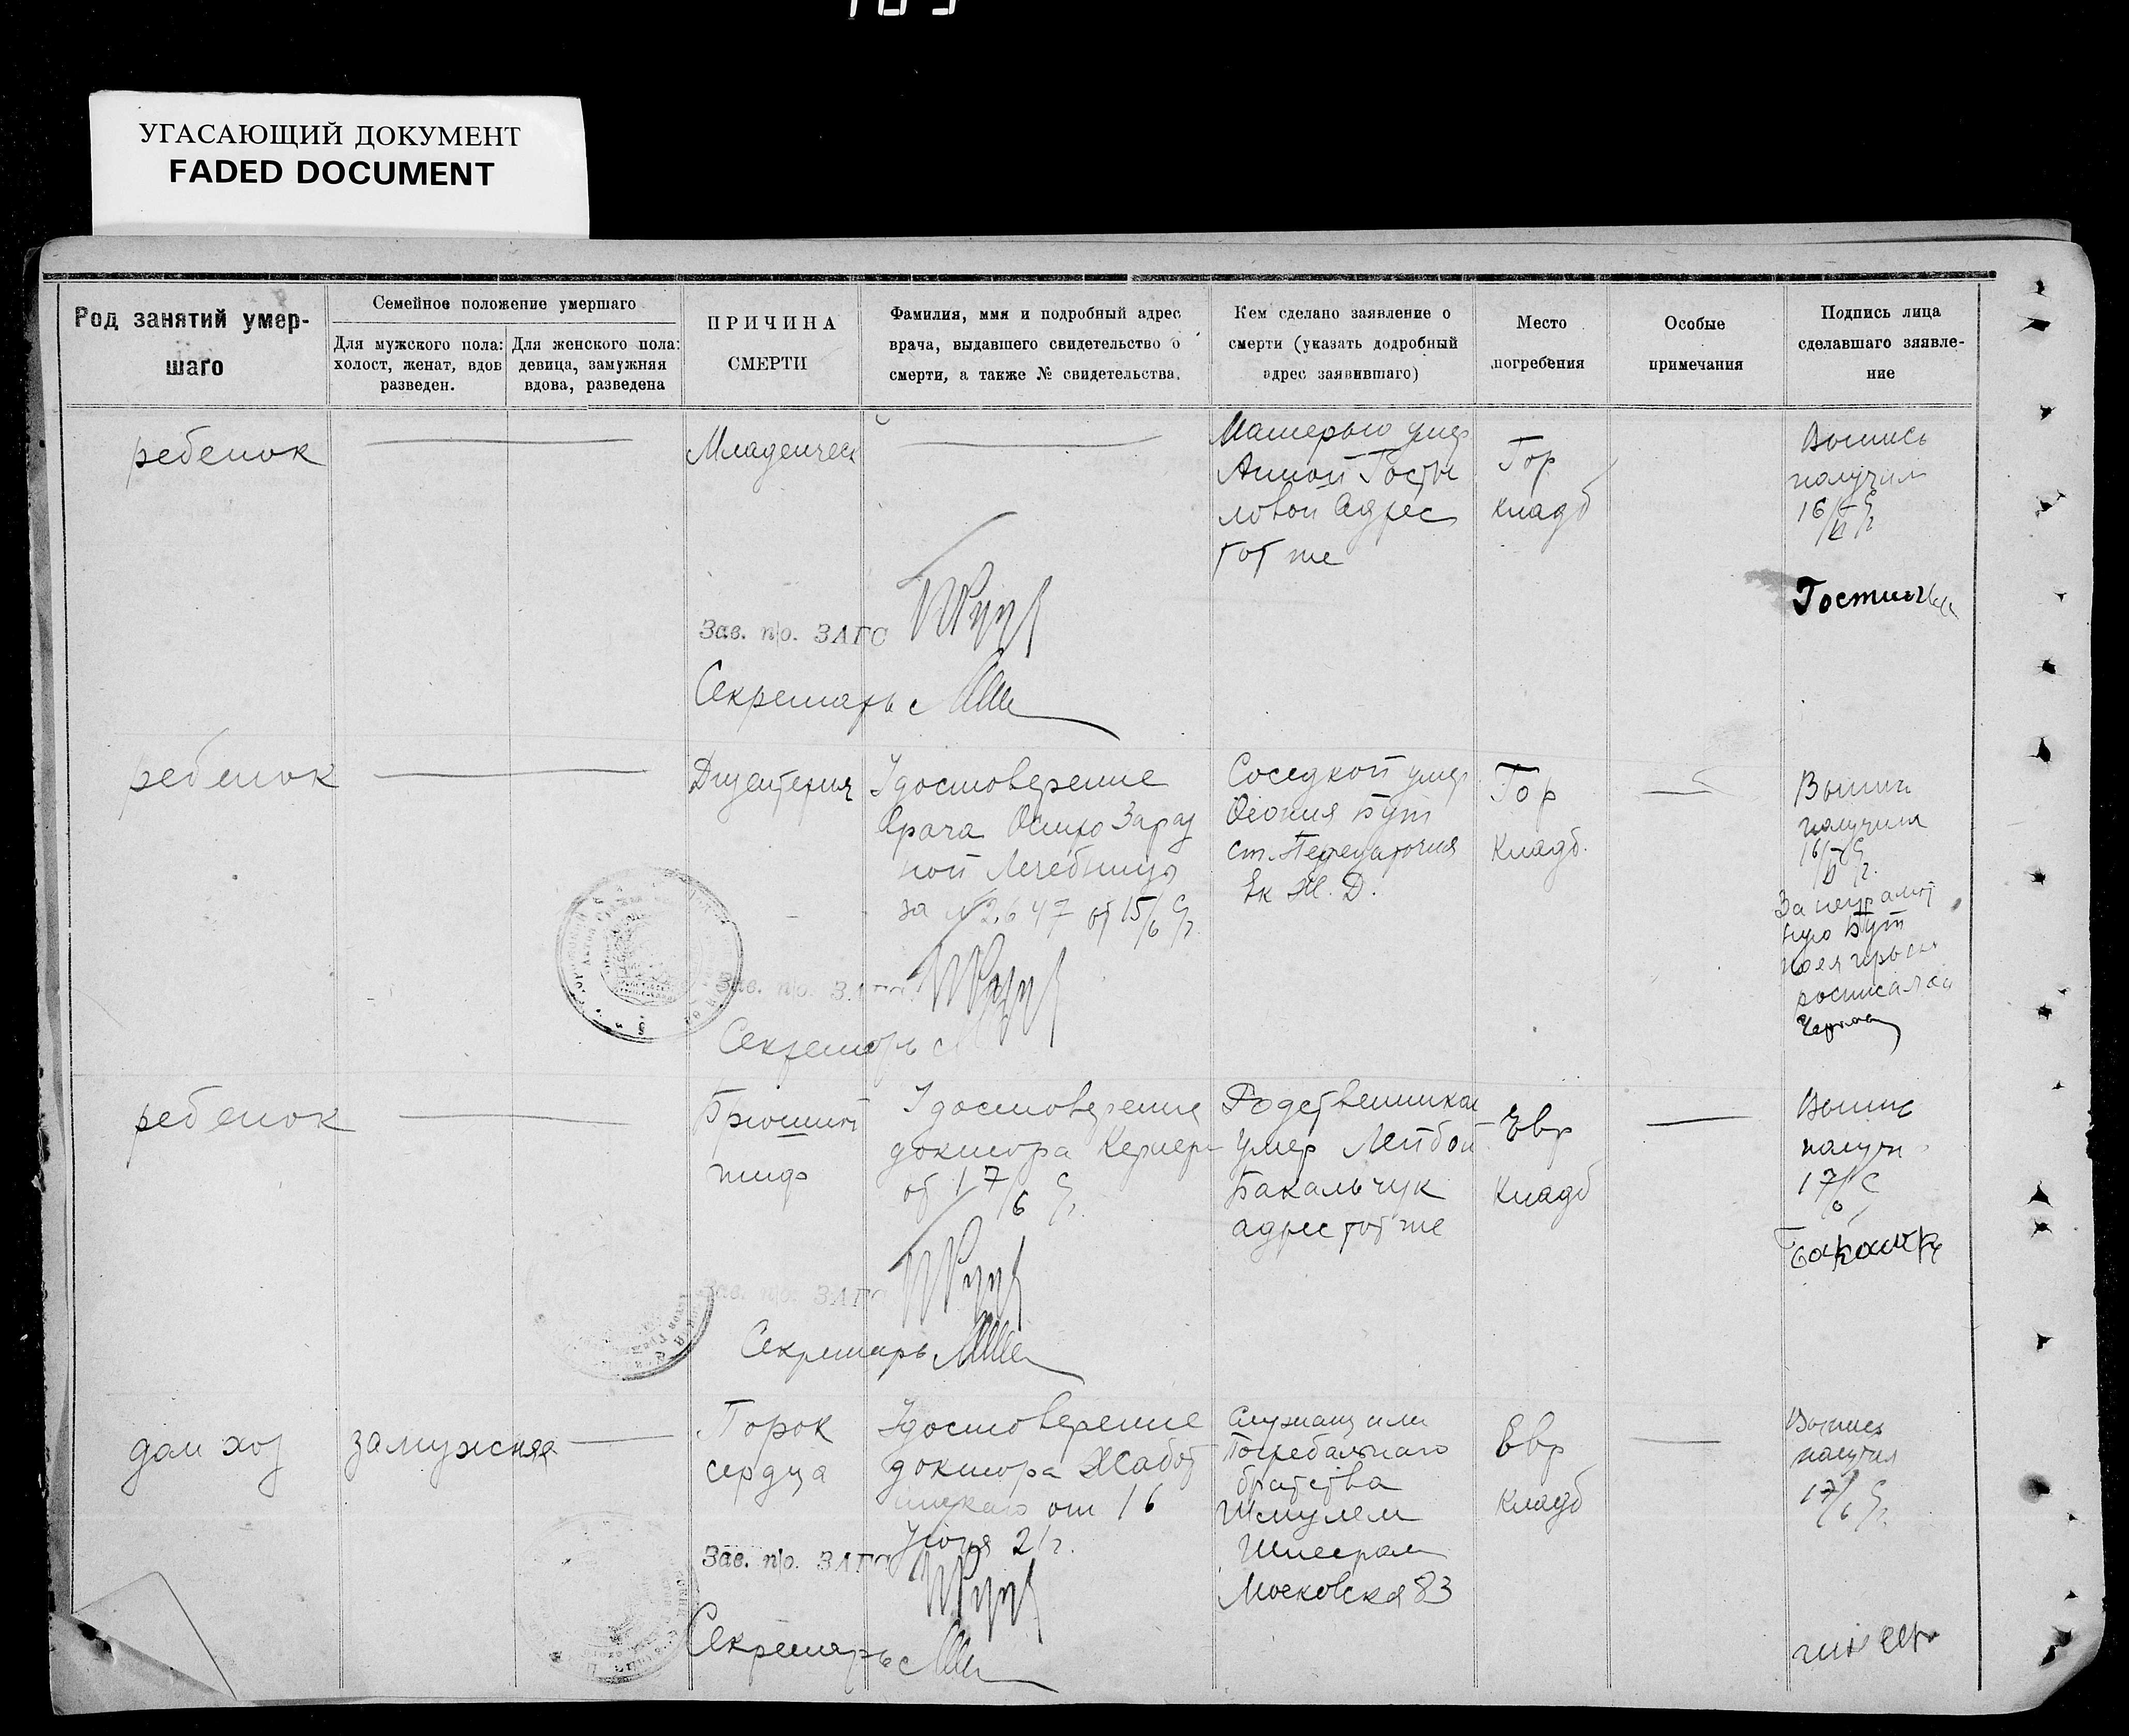 УГАСАЮЩИЙ ДОКУМЕНТ
FADED DOCUMENT
Род занятий умер-
шаго
Семейное положение умершаго
Для мужского пола:
холост, женат, вдов
разведен.
Для женского пола:
девица, замужняя
вдова, разведена
ПРИЧИНА
СМЕРТИ
Фамилия, ммя и подробный адрес
врача, выдавшего свидетельство о
смерти, а также № свидетельства.
Кем сделано заявление о
смерти (указать додробный
адрес заявившаго)
Место
погребения
Особые
примечания
Подпись лица
сделавшаго зяявле-
ние
ребенок
Младенческ
Матерью умер
Анной Госты
ловой Адрес
тот же
Гор
кладб
Выпись
получил
16/VI
Зав. п/о. ЗАГС
Секретарь
ребенок
Дизентерия
Удостоверение
Врача Остро Зараз
ной Лечебницы
за № 2647 от 15/6
Соседкой умер
Бут
ст.
Ек Ж. Д.
Гор
Кладб.
Выпись
получила
16/VI
За неграмот
ную Бут
росписалась
Зав. п/о. ЗАГС
Секретарь
ребенок
Брюшной
тиф
Удостоверение
доктора
от 17/6
Родственником
умер Лейбой
Бакальчук
адрес тот же
Евр
Кладб
Выпись
получил
17/6
Зав. п/о. ЗАГС
Секретарь
дом хоз
замужняя
Порок
сердца
Удостоверение
доктора Жабот
инскаго от 16
Июня 21г.
Служащ или
Погребальнаго
братства
Шмулем
Московская 83
Евр
Кладб
Выпись
получил
17/6
Зав. п/о. ЗАГС
Секретарь